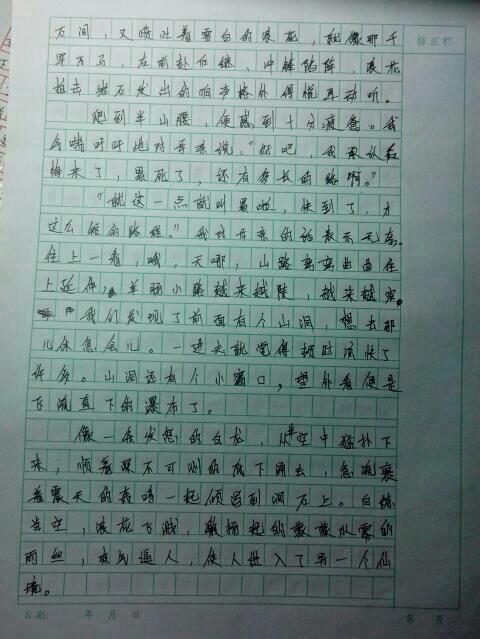 石间，又喷吐着雪白的浪花，就像那千
军万马，在前扑后继，冲锋陷阵，浪花
拍击岩石发出的响声格外得悦耳动听。
爬到半山腰，便感到十分疲惫。我
会喘吁吁地对母亲说，"好吧，我承认我
悔来了，累死了，还有多长的路啊。"
"就这一点就叫累啦，快到了，才
这么短的路程。"我对母亲的话表示无奈。
往上一看，哦，天哪，山路弯弯曲曲往
上延伸，羊肠小路越来越陡，越来越窄。
我们发现了前面有个山洞，想去那
儿休息会儿。一进去就觉得顿时凉快了
许多。山洞还有个小窗口，望外看便是
飞流直下的瀑布了。
像一条发怒的白龙，从半空中猛扑下
来，顺着深不可测的底下涌去，急流裹
着震天的轰鸣一起倾泻到洞石上。白练
当空，浪花飞溅，飘扬起的蒙蒙水雾的
雨丝，寒气逼人，使人进入了另一个仙
境。
修正栏
日期： 年 月 日
第 页